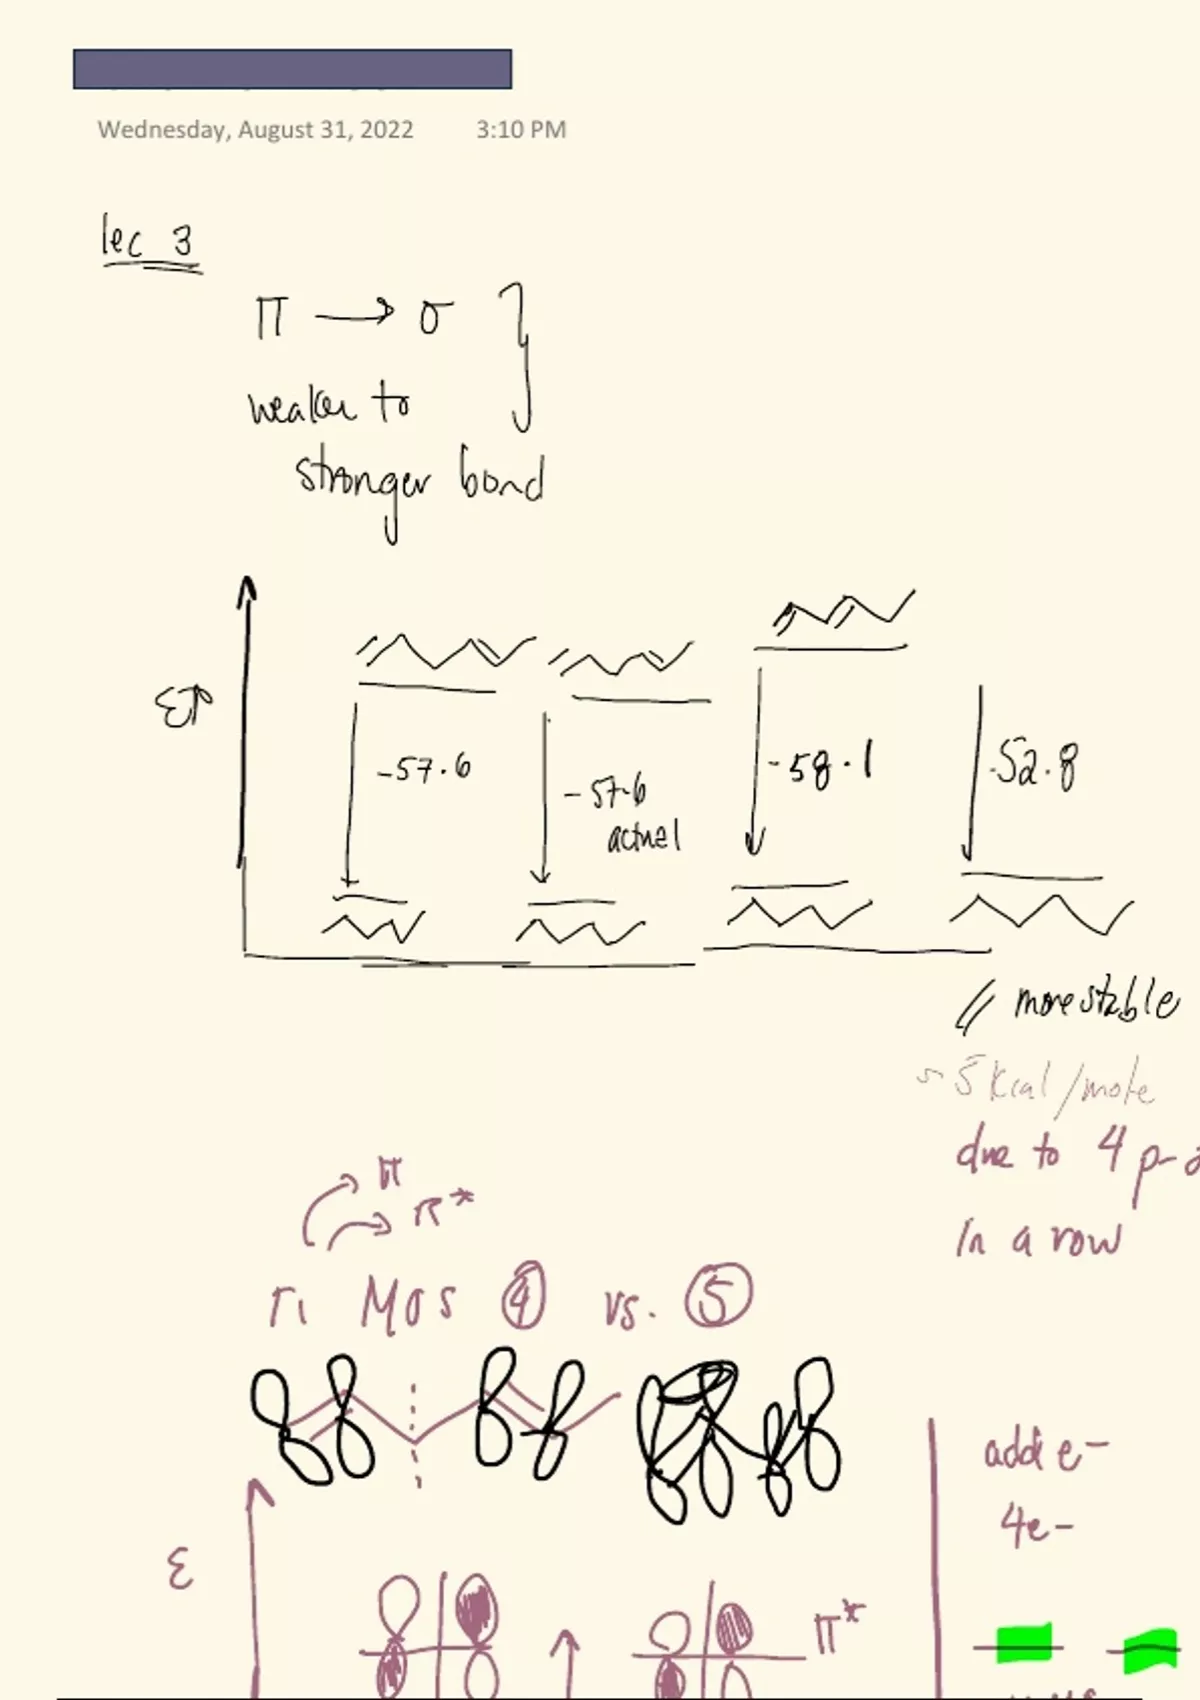 Wednesday, August 31, 2022 3:10 PM
lec 3
π → σ
weaker to
stronger bond
E↑
-57.6
-57.6
actual
-58.1
-52.8
// more stable
~5 kcal/mole
due to 4 p-
in a row
π
π*
π MOs ④ vs. ⑤
add e-
4e-
ε
π*